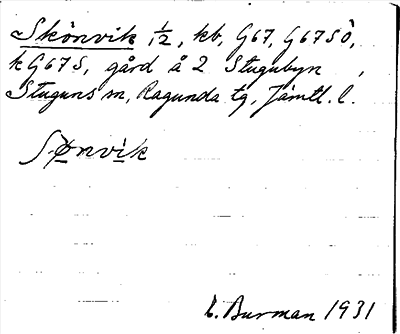 Skönvik 1/2, kb, G67, G67SÖ,
k G67S, gård å 2 Stugubyn,
Stuguns sn, Ragunda tg, Jämtl. l.
Sønvik
C. Burman 1931